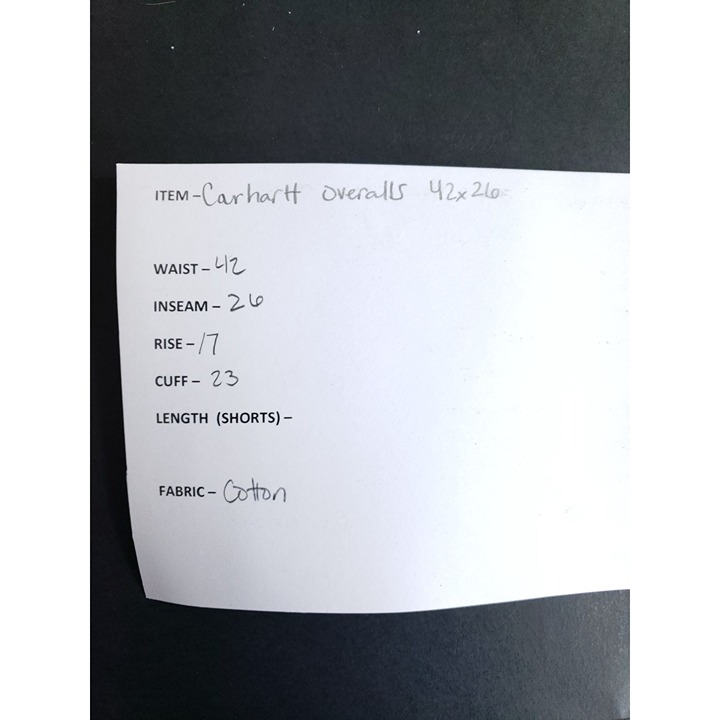 ITEM - Carhartt overalls 42x26
WAIST - 42
INSEAM - 26
RISE - 17
CUFF - 23
LENGTH (SHORTS) -
FABRIC - Cotton